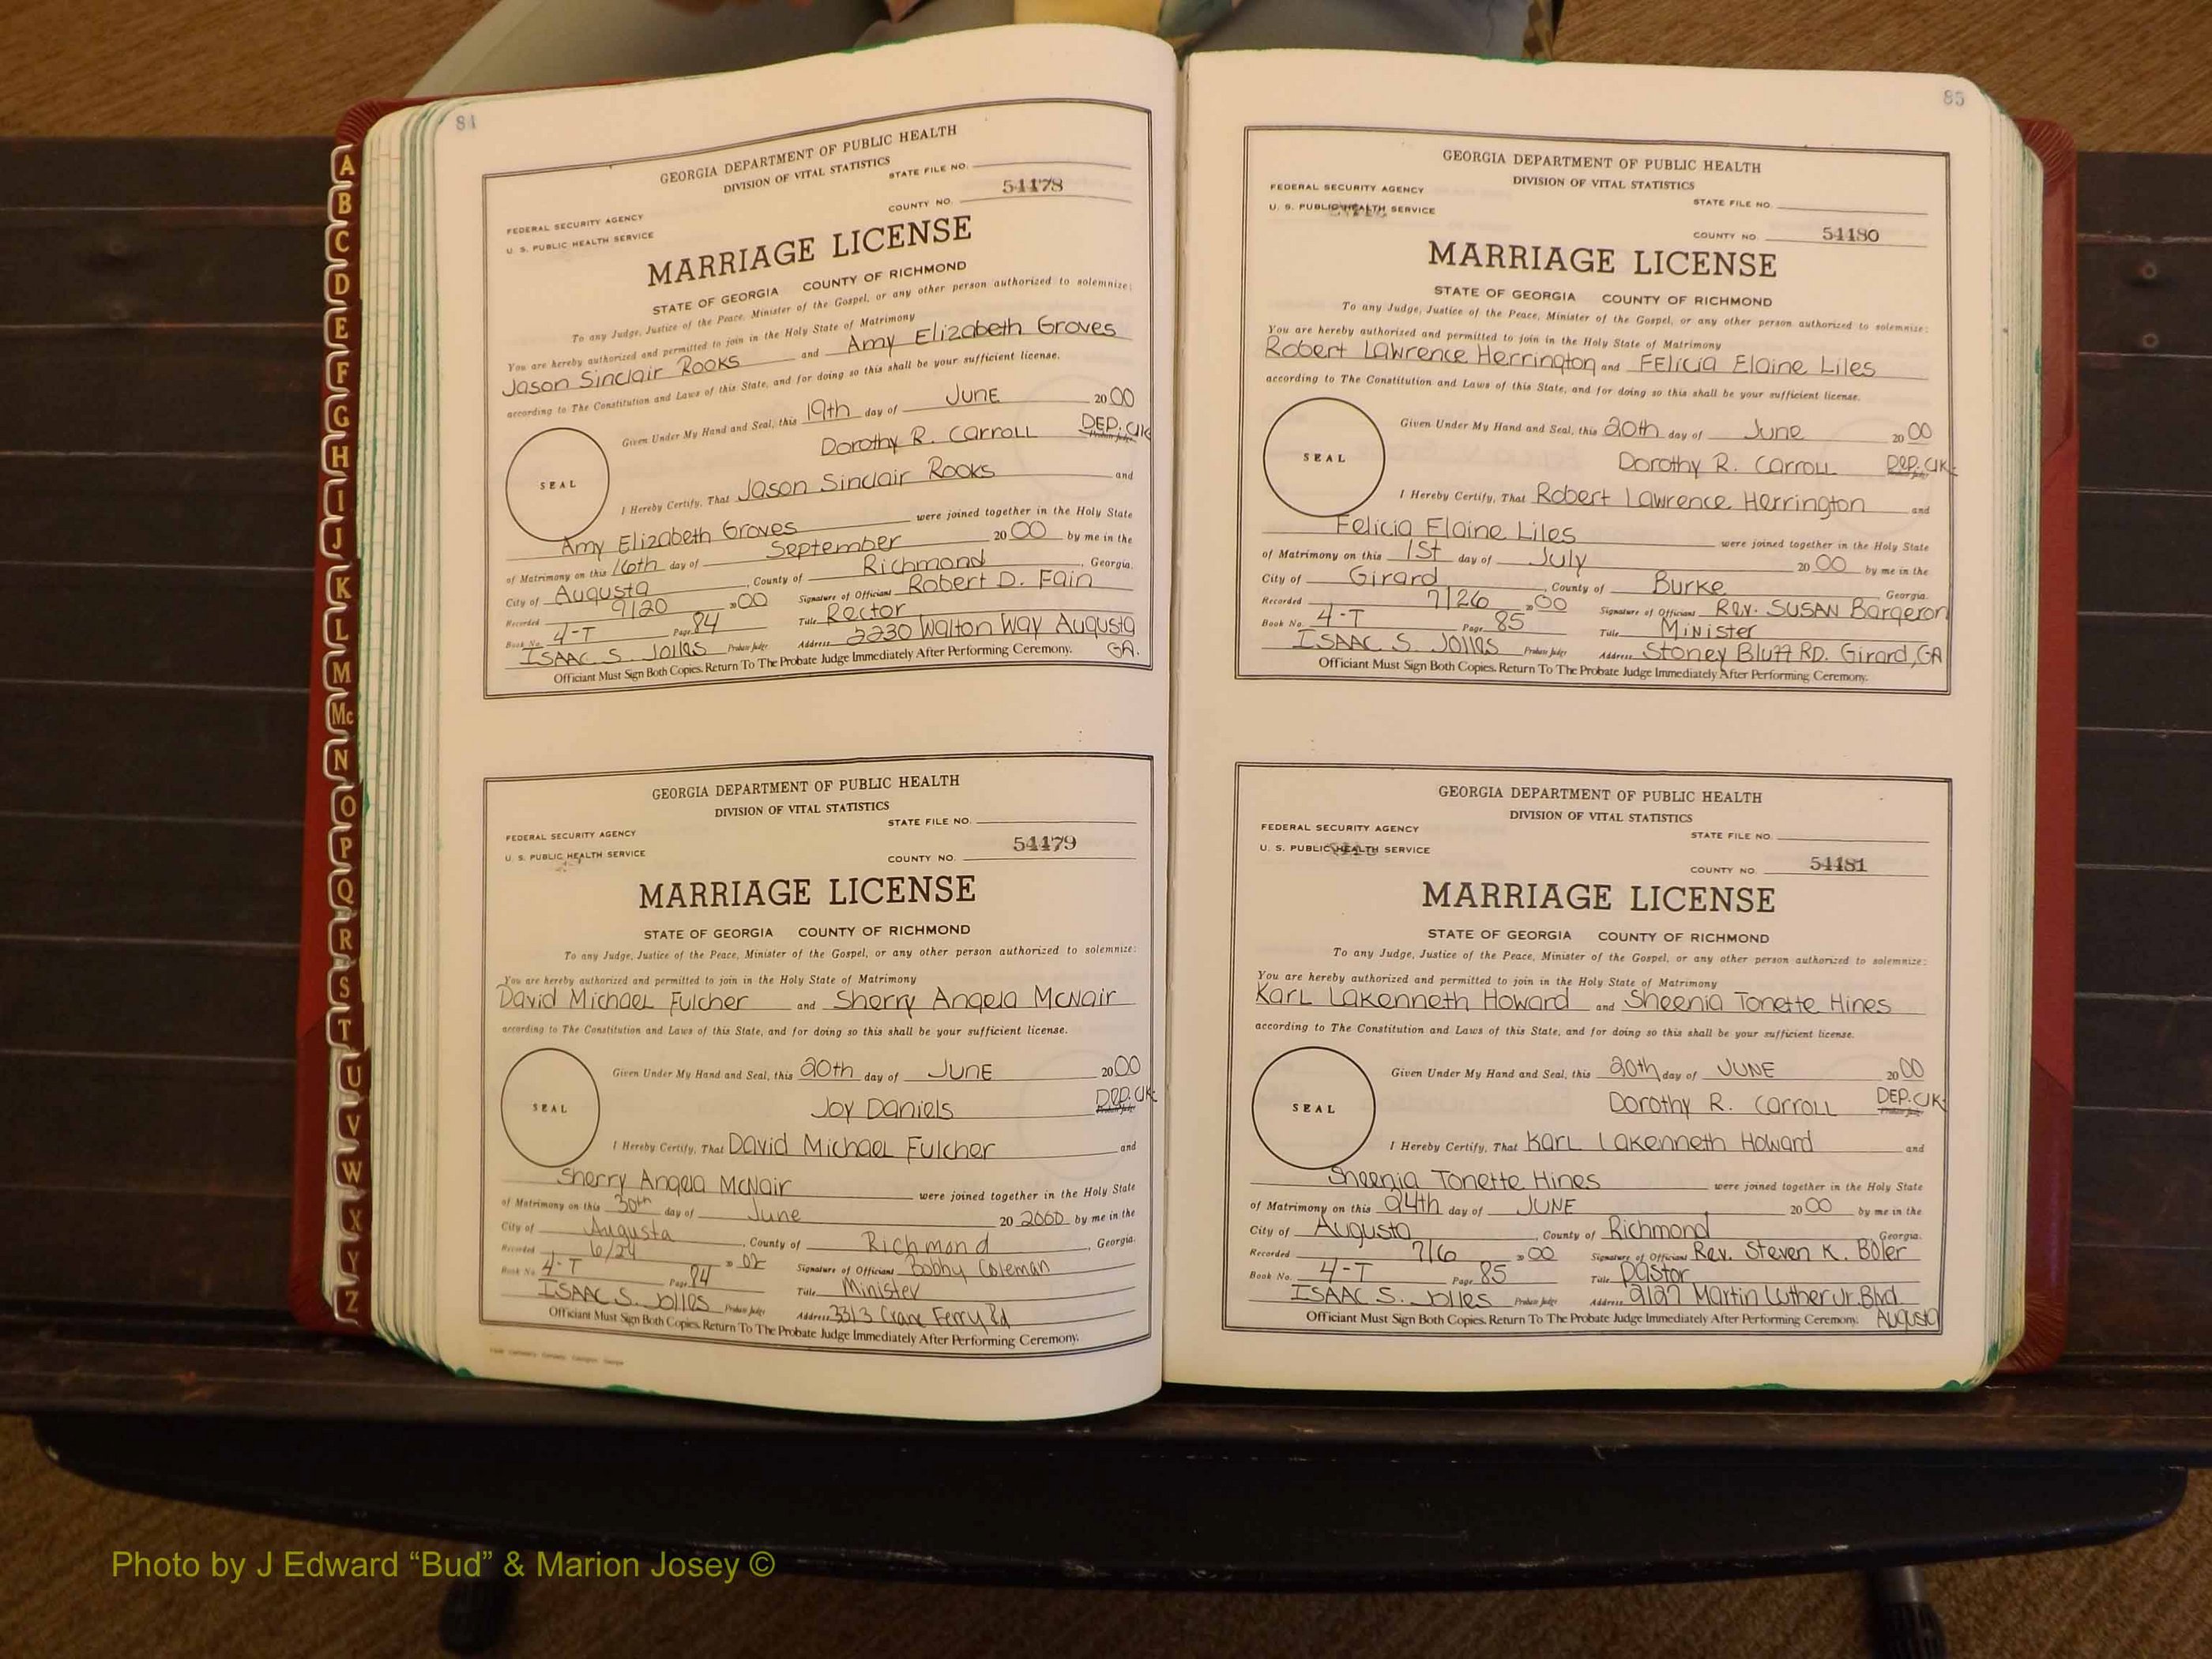 A
B
C
D
E
F
G
H
I
J
K
L
M
Mc
N
O
P
Q
R
S
T
U
V
W
X
Y
Z
84
GEORGIA DEPARTMENT OF PUBLIC HEALTH
DIVISION OF VITAL STATISTICS
STATE FILE NO.
FEDERAL SECURITY AGENCY
U. S. PUBLIC HEALTH SERVICE
COUNTY NO. 54178
MARRIAGE LICENSE
STATE OF GEORGIA COUNTY OF RICHMOND
To any Judge, Justice of the Peace, Minister of the Gospel, or any other person authorized to solemnize:
You are hereby authorized and permitted to join in the Holy State of Matrimony
Jason Sinclair Rooks and Amy Elizabeth Groves
according to The Constitution and Laws of this State, and for doing so this shall be your sufficient license.
Given Under My Hand and Seal, this 19th day of JUNE 2000
Dorothy R. Carroll DEP. Clk Probate Judge
SEAL
I Hereby Certify, That Jason Sinclair Rooks and
Amy Elizabeth Groves were joined together in the Holy State
of Matrimony on this 16th day of September 2000 by me in the
City of Augusta, County of Richmond, Georgia.
Recorded 9/20 2000 Signature of Officiant Robert D. Fain
Book No. 4-T Page 84 Title Rector
ISAAC S. Jolles Probate Judge Address 2230 Walton Way Augusta
GA.
Officiant Must Sign Both Copies. Return To The Probate Judge Immediately After Performing Ceremony.
GEORGIA DEPARTMENT OF PUBLIC HEALTH
DIVISION OF VITAL STATISTICS
STATE FILE NO.
FEDERAL SECURITY AGENCY
U. S. PUBLIC HEALTH SERVICE
COUNTY NO. 54179
MARRIAGE LICENSE
STATE OF GEORGIA COUNTY OF RICHMOND
To any Judge, Justice of the Peace, Minister of the Gospel, or any other person authorized to solemnize:
You are hereby authorized and permitted to join in the Holy State of Matrimony
David Michael Fulcher and Sherry Angela McNair
according to The Constitution and Laws of this State, and for doing so this shall be your sufficient license.
Given Under My Hand and Seal, this 20th day of JUNE 2000
Joy Daniels DEP. Clk. Probate Judge
SEAL
I Hereby Certify, That David Michael Fulcher and
Sherry Angela McNair were joined together in the Holy State
of Matrimony on this 30th day of June 20 2000 by me in the
City of Augusta, County of Richmond, Georgia.
Recorded 6/24 20 02 Signature of Officiant Bobby Coleman
Book No. 4-T Page 84 Title Minister
ISAAC S. Jolles Probate Judge Address 3313 Crane Ferry Rd
Officiant Must Sign Both Copies. Return To The Probate Judge Immediately After Performing Ceremony.
85
GEORGIA DEPARTMENT OF PUBLIC HEALTH
DIVISION OF VITAL STATISTICS
FEDERAL SECURITY AGENCY
U. S. PUBLIC HEALTH SERVICE
STATE FILE NO.
COUNTY NO. 54180
MARRIAGE LICENSE
STATE OF GEORGIA COUNTY OF RICHMOND
To any Judge, Justice of the Peace, Minister of the Gospel, or any other person authorized to solemnize:
You are hereby authorized and permitted to join in the Holy State of Matrimony
Robert Lawrence Herrington and FELicia Elaine Liles
according to The Constitution and Laws of this State, and for doing so this shall be your sufficient license.
Given Under My Hand and Seal, this 20th day of June 2000
Dorothy R. Carroll Dep. Clk.
SEAL
I Hereby Certify, That Robert Lawrence Herrington and
Felicia Elaine Liles were joined together in the Holy State
of Matrimony on this 1st day of July 2000 by me in the
City of Girard, County of Burke Georgia.
Recorded 7/26 2000 Signature of Officiant Rev. SUSAN Bargeron
Book No. 4-T Page 85 Title Minister
ISAAC S. Jolles Probate Judge Address Stoney Bluff RD. Girard, GA
Officiant Must Sign Both Copies. Return To The Probate Judge Immediately After Performing Ceremony.
GEORGIA DEPARTMENT OF PUBLIC HEALTH
DIVISION OF VITAL STATISTICS
FEDERAL SECURITY AGENCY
U. S. PUBLIC HEALTH SERVICE
STATE FILE NO.
COUNTY NO. 54181
MARRIAGE LICENSE
STATE OF GEORGIA COUNTY OF RICHMOND
To any Judge, Justice of the Peace, Minister of the Gospel, or any other person authorized to solemnize:
You are hereby authorized and permitted to join in the Holy State of Matrimony
Karl Lakenneth Howard and Sheenia Tonette Hines
according to The Constitution and Laws of this State, and for doing so this shall be your sufficient license.
Given Under My Hand and Seal, this 20th day of JUNE 2000
Dorothy R. Carroll DEP. Clk. Probate Judge
SEAL
I Hereby Certify, That Karl Lakenneth Howard and
Sheenia Tonette Hines were joined together in the Holy State
of Matrimony on this 24th day of JUNE 2000 by me in the
City of Augusta, County of Richmond Georgia.
Recorded 7/6 2000 Signature of Officiant Rev. Steven K. Boler
Book No. 4-T Page 85 Title Pastor
ISAAC S. Jolles Probate Judge Address 2127 Martin Luther Jr. Blvd.
Officiant Must Sign Both Copies. Return To The Probate Judge Immediately After Performing Ceremony. Augusta
Photo by J Edward “Bud” & Marion Josey ©